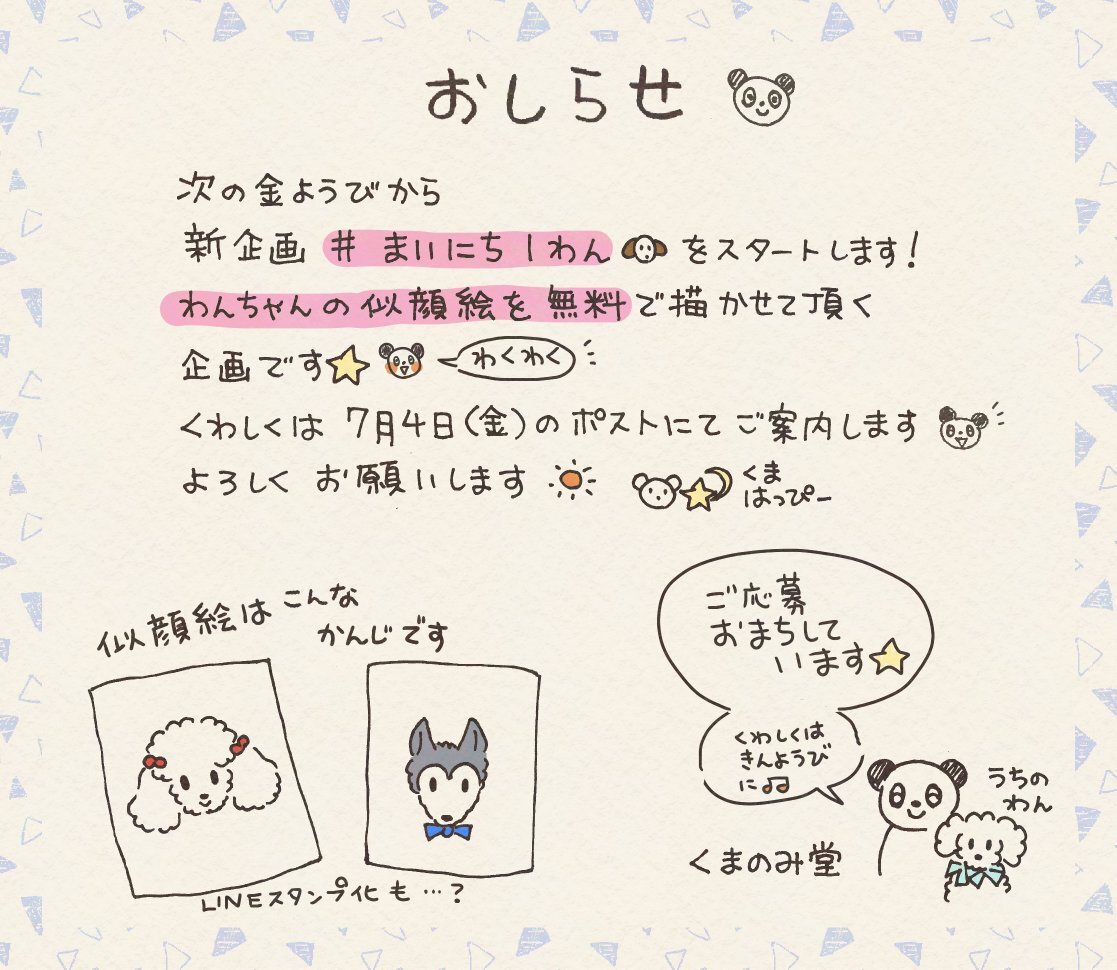 おしらせ
次の金ようびから
新企画 # まいにち1わん をスタートします!
わんちゃんの似顔絵を無料で描かせて頂く
企画です
わくわく
くわしくは 7月4日(金)の ポストにて ご案内します
よろしく お願いします
くま
はっぴー
似顔絵は こんな
かんじです
LINEスタンプ化 も …?
ご応募
おまちして
います
くわしくは
きんようび
に♫
うちの
わん
くまのみ堂